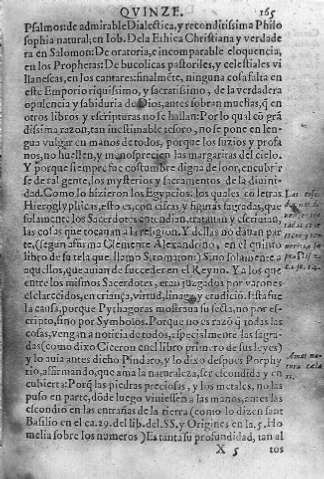 QVINZE. 165
Psalmos: de admirable Dialectica, y reconditissima Philo
sophia natural; en Iob. De la Ethica Christiana y verdade
ra en Salomon: De oratoria, e incomparable eloquencia,
en los Prophetas: De bucolicas pastoriles, y celestiales vi
llanescas, en los cantares: finalmẽte, ninguna cosa falta en
este Emporio riquissimo, y sacratissimo, de la verdadera
opulencia y sabiduria de Dios, antes sobran muchas, q̃ en
otros libros y escripturas no se hallan: Por lo qual cõ grã
dissima razon, tan inestimable tesoro, no se pone en len
gua vulgar en manos de todos, porque los suzios y profa
nos, no huellen, y menosprecien las margaritas del cielo.
Y porque siempre fue costumbre digna de loor, encubrir
se de tal gente, los mysterios y sacramentos de la diuini-
dad. Como lo hizieron los Egypcios, los quales cõ letras
Hieroglyphicas, esto es, con cifras y figuras sagradas, que
solamente los Sacerdotes entendian, tratauan y escriuian,
las cosas que tocauan a la religion. Y dellas no dauan par
te, (segun afirma Clemente Alexandrino, en el quinto
libro de su tela que llamo Stromaton) Sino solamente a
aquellos, que auian de succeder en el Reyno. Y a los que
entre los mismos Sacerdotes, eran juzgados por varones
esclarecidos, en criança, virtud, linage, y erudicion. Esta fue
la causa, porque Pythagoras mostraua su secta, no por es-
cripto, sino por Symbolos. Porque no es razõ q̃ todas las
cosas, vengan a noticia de todos, especialmente las sagra-
das (como dixo Ciceron en el libro primero de sus leyes)
y lo auia antes dicho Pindaro, y lo dixo despues Porphy
rio, afirmando, que ama la naturaleza, ser escondida y en
cubierta: Porq̃ las piedras preciosas, y los metales, no las
puso en parte, dõde luego viniessen a las manos, antes las
escondio en las entrañas de la tierra (como lo dizen sant
Basilio en el ca. 29. del lib. del. SS. y Origines en la. 5. Ho
melia sobre los numeros) Es tanta su profundidad, tan al
X 5 tos
Las cosas
Amat na-
tura cela